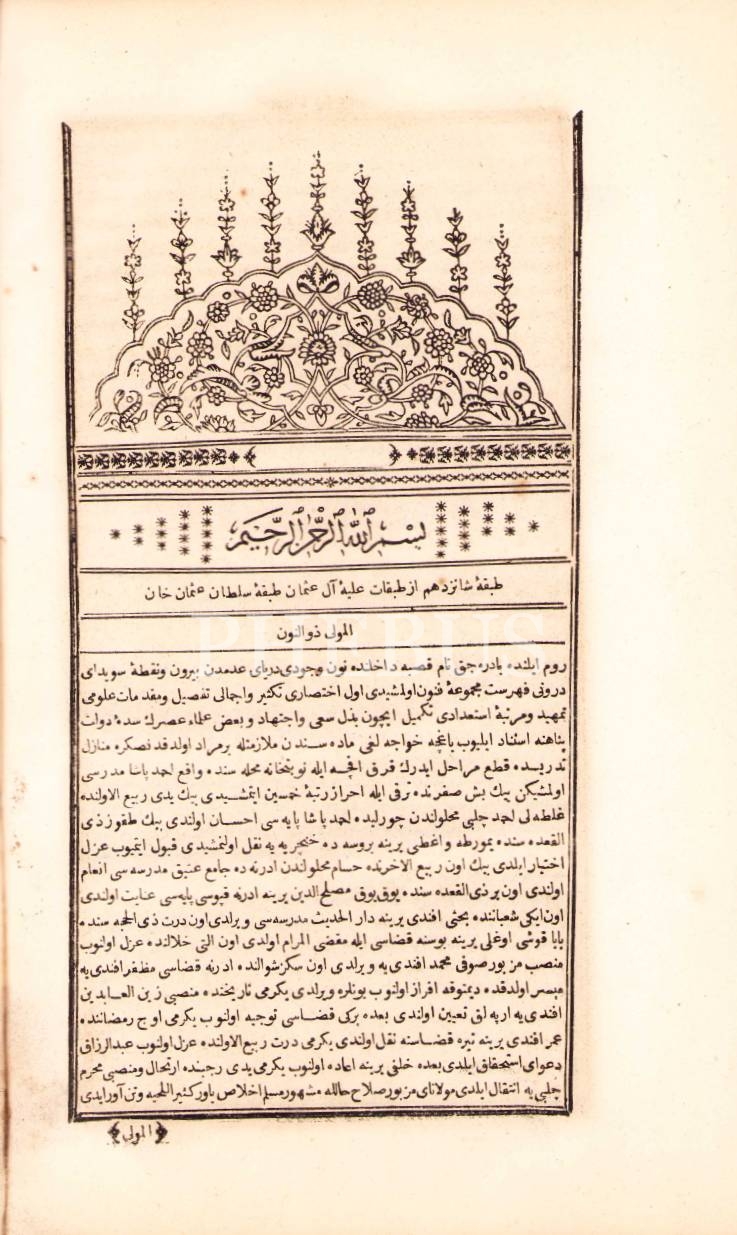 بسم الله الرحمن الرحيم
طبقهٔ شانزدهم از طبقات عليهٔ آل عثمان طبقهٔ سلطان عثمان خان
المولى ذو النون
روم ايلنده يادره جق نام قصبه داخلنده نون وجودى درياى عدمدن بيرون ونقطهٔ سويداى
درونى فهرست مجموعهٔ فنون اولمشيدى اول اختصارى تكثير واجمالى تفصيل ومقدمات علومى
تمهيد ومرتبهٔ استعدادى تكميل ايچون بذل سعى واجتهاد و بعض علماء عصرك سدهٔ دولت
پناهنه استناد ايليوب باغچه خواجه لغى ماده سندن ملازمتله برمراد اولدقدنصكره منازل
تدريسده قطع مراحل ايدرك قرق اقچه ايله نوبتخانه محله سنده واقع احمد پاشا مدرسى
اولمشيكن بيك بش صفرنده ترقى ايله احراز رتبهٔ خمسين ايتمشيدى بيك يدى ربيع الاولنده
غلطه لى احمد چلبى محلولندن چورليده احمد پاشا پايه سى احسان اولندى بيك طقوز ذى
القعده سنده يمورطه واعظى يرينه بروسه ده خنجريه يه نقل اولنمشيدى قبول ايتميوب عزل
اختيار ايلدى بيك اون ربيع الاخرنده حسام محلولندن ادرنه ده جامع عتيق مدرسه سى انعام
اولندى اون بر ذى القعده سنده بوق بوق مصلح الدين يرينه ادرنه قپوسى پايه سى عنايت اولندى
اون ايكى شعباننده يحيى افندى يرينه دار الحديث مدرسه سى ويرلدى اون درت ذى الحجه سنده
پاپا قوشى اوغلى يرينه بوسنه قضاسى ايله مقضى المرام اولدى اون التى خلالنده عزل اولنوب
منصب مزبور صوفى محمد افندى يه ويرلدى اون سكز شوالنده ادرنه قضاسى مظفر افندى يه
ميسر اولدقده ديمتوقه افراز اولنوب بونلره ويرلدى يكرمى تاريخنده منصبى زين العابدين
افندى يه ارپه لق تعيين اولندى بعده بركى قضاسى توجيه اولنوب يكرمى اوچ رمضاننده
عمر افندى يرينه تيره قضاسنه نقل اولندى يكرمى درت ربيع الاولنده عزل اولنوب عبدالرزاق
دعواى استحقاق ايلدى بعده خلقى يرينه اعاده اولنوب يكرمى يدى رجبنده ارتحال ومنصبى محرم
چلبى يه انتقال ايلدى مولاناى مزبور صلاح حالله مشهور مسلم اخلاص ياور كثير اللحيه وتن آور ايدى
المولى